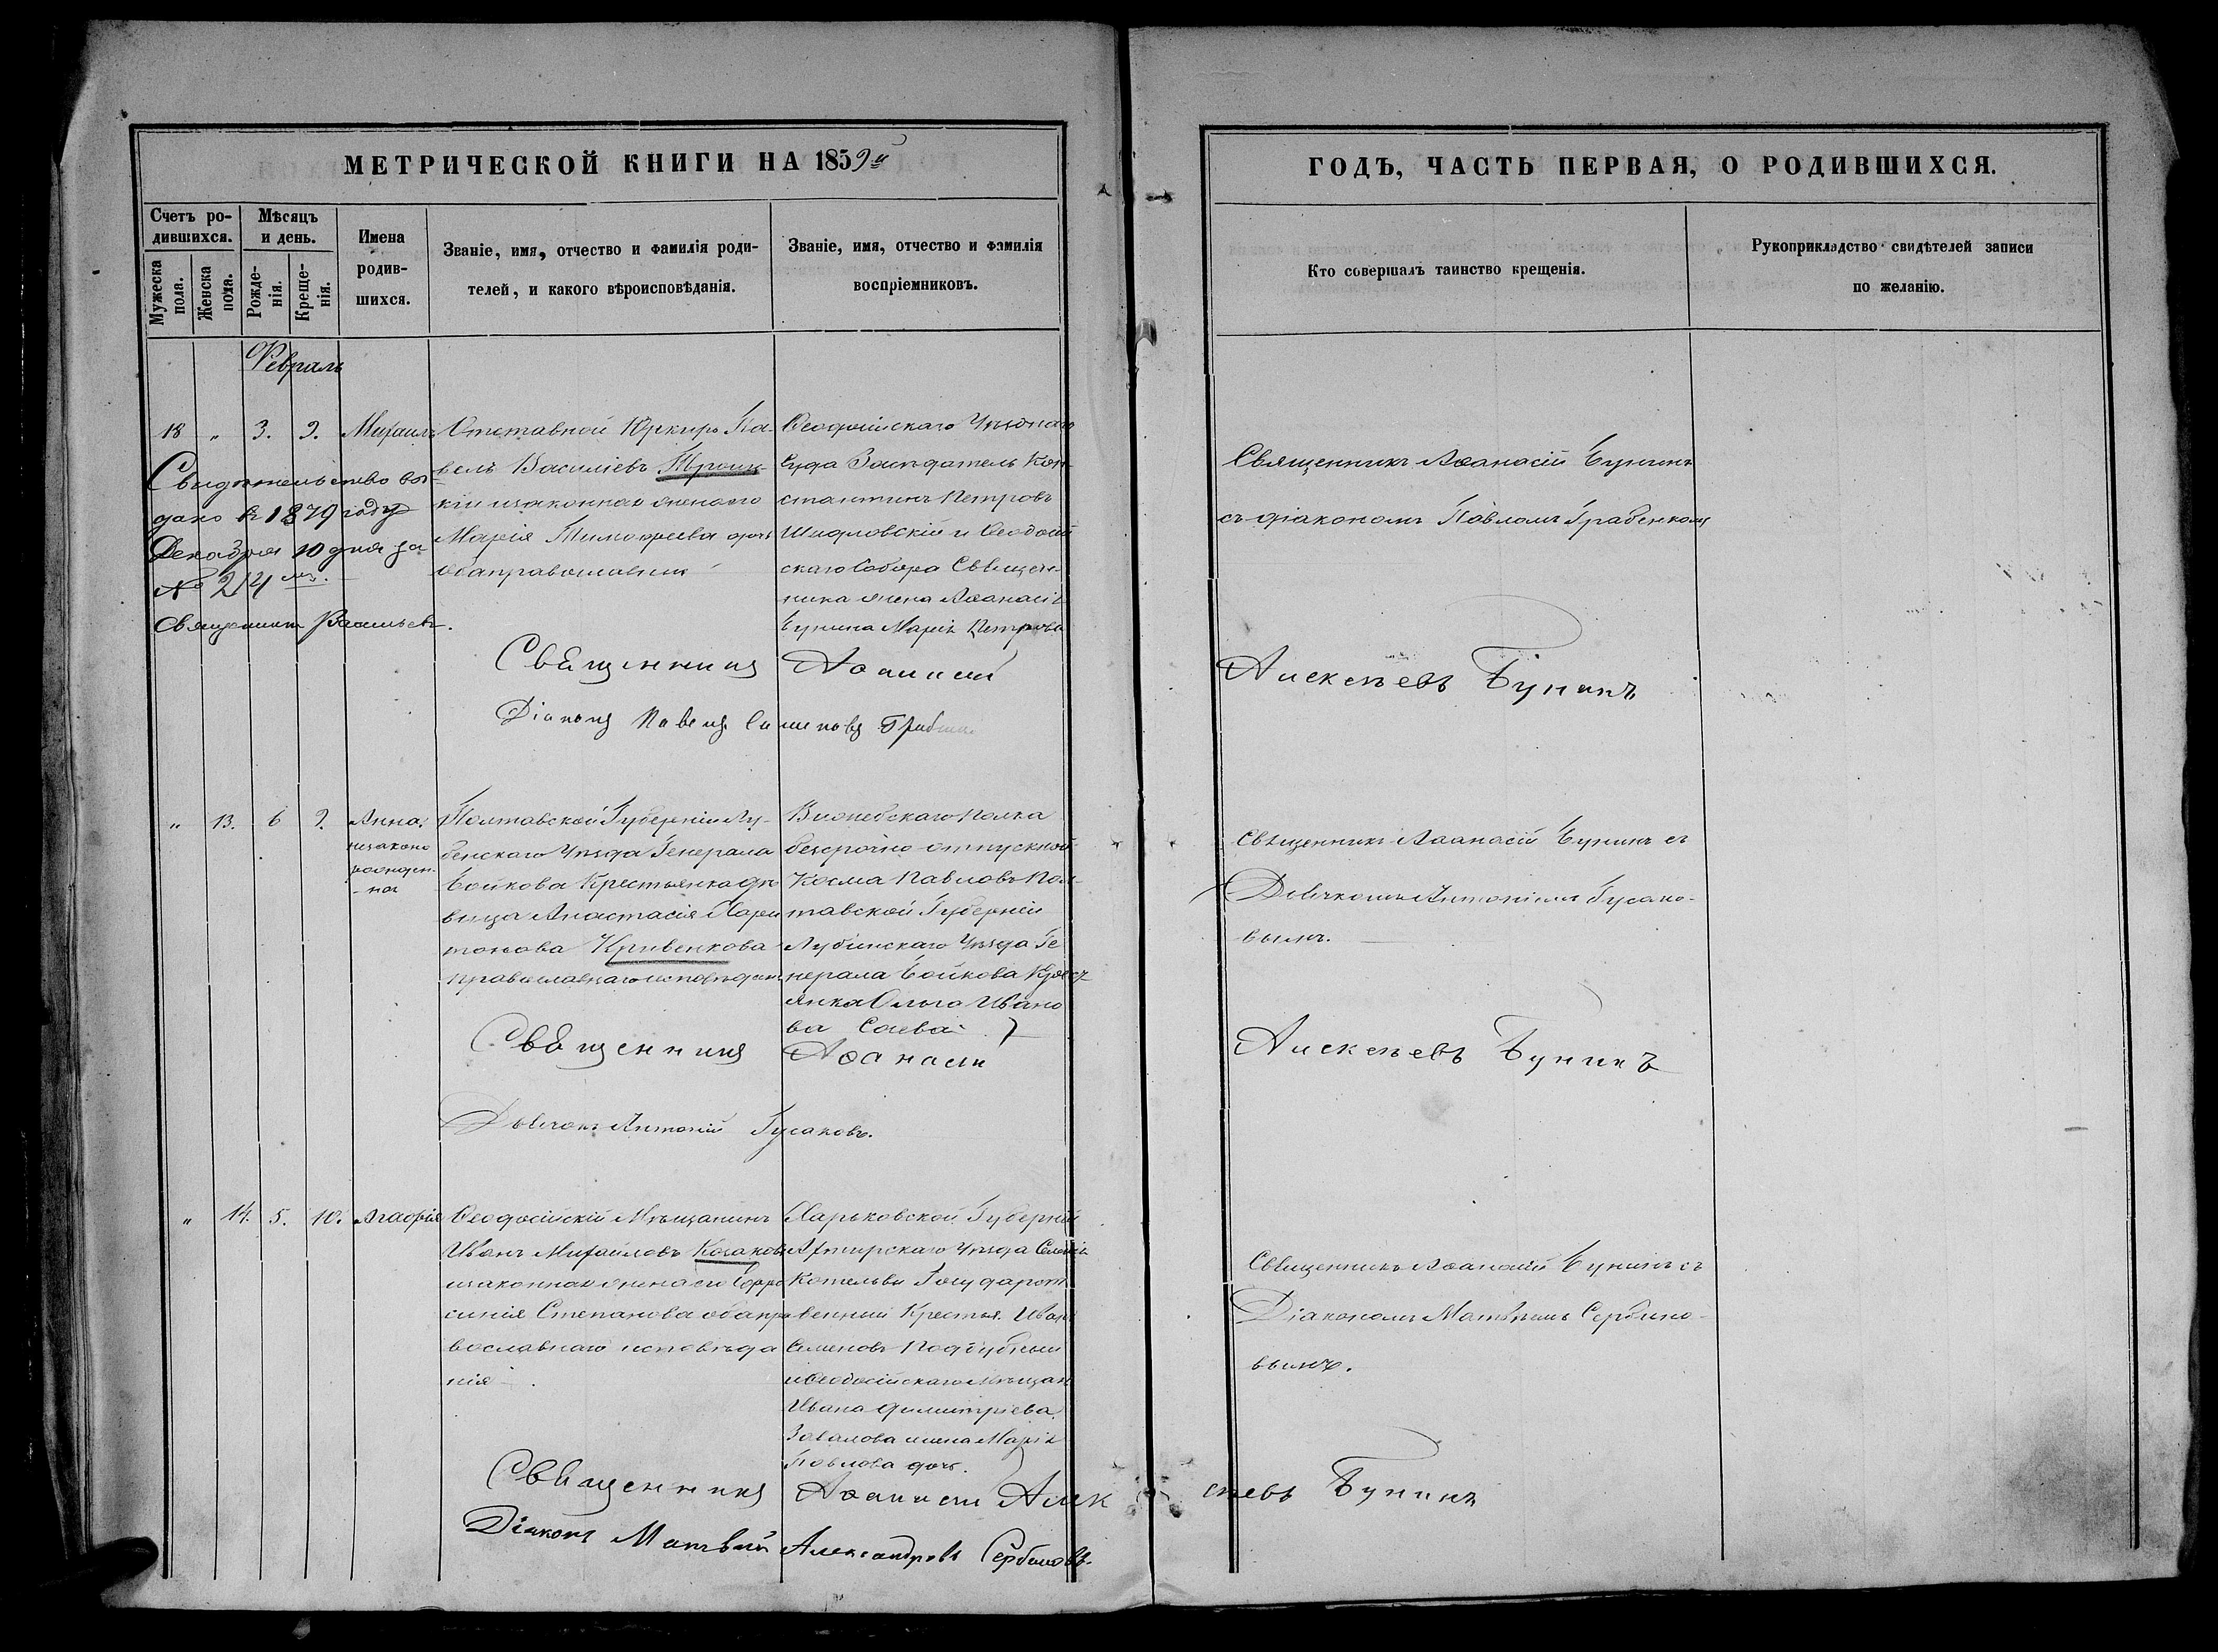 МЕТРИЧЕСКОЙ КНИГИ НА 1859й
ГОДЪ, ЧАСТЬ ПЕРВАЯ, О РОДИВШИХСЯ.
Счетъ ро-
дившихся.
Мужеска пола.
Женска пола.
Мѣсяцъ
и день.
Рожде-
нія.
Креще-
нія.
Имена
родив-
шихся.
Званіе, имя, отчество и фамилія роди-
телей, и какого вѣроисповѣданія.
Званіе, имя, отчество и фамилія
воспріемниковъ.
Кто совершалъ таинство крещенія.
Рукоприкладство свидѣтелей записи
по желанію.
Февраль
18 " 3. 9. Михаилъ
Свидѣтельство вы-
дано въ 1879 году
Декабря 10 дня за
№ 214
Священникъ Васильевъ.
Отставной Юнкиръ Па-
велъ Василіевъ Троиц-
кій изаконная женаего
Марія Тимофеева дочь
оба православные
Феодосійскаго Уѣзднаго
Суда Засѣдатель Кон-
стантинъ Петровъ
Шидловскій и Феодосій
скаго Собора Священ-
ника жена Аѳанасія
Бунина Марія Петрова
Священникъ Аѳанасій Бунинъ
съ діакономъ Павломъ Грабенкомъ
Священникъ Аѳанасій
Алексѣевъ Бунинъ
Діаконъ Павелъ
" 13. 6 9. Анна.
незаконо
рожден-
ная
Полтавской Губерніи Лу-
бенскаго Уѣзда Генерала
Бойкова Крестьянка дѣ
вица Анастасія Хари
тонова Кривенкова
православнаго исповѣдан.
Витебскаго полка
безсрочно-отпускной
Косма Павловъ Пол-
тавской Губерніи
Лубинскаго Уѣзда Ге
нерала Бойкова Крест
янка Ольга Ивано
ва Саева
Священникъ Аѳанасій Бунинъ съ
Дьячкомъ Антоніемъ Гусако-
вымъ.
Священникъ Аѳанасій
Алексѣевъ Бунинъ
Дьячокъ Антоній Гусаковъ.
" 14. 5. 10. Агафія
Феодосійскій Мѣщанинъ
Иванъ Михайловъ Козаковъ
изаконная жена его Ефро
синія Степанова оба пра
вославнаго исповѣда
нія
Харьковской Губерніи
Ахтирскаго Уѣзда Селенія
Котельвы Государст
венный Крестья. Иванъ
Семеновъ Поддубный
иФеодосійскаго Мѣщан
Ивана Димитріева
жена Марія
Павлова дочь.
Священникъ Аѳанасій Бунинъ съ
Діакономъ Матвѣемъ Сербино-
вымъ.
Священникъ Аѳанасій Алек
сѣевъ Бунинъ
Діаконъ Матвѣй Александровъ Сербиновъ.